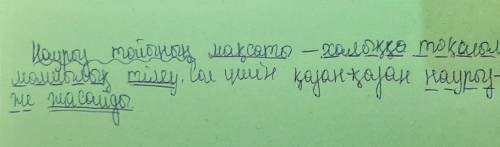 Наурыз тойының мақсаты – халыққа тоқшылық
молшылық тілеу, сол үшін қазан-қазан наурыз-
же жасайды